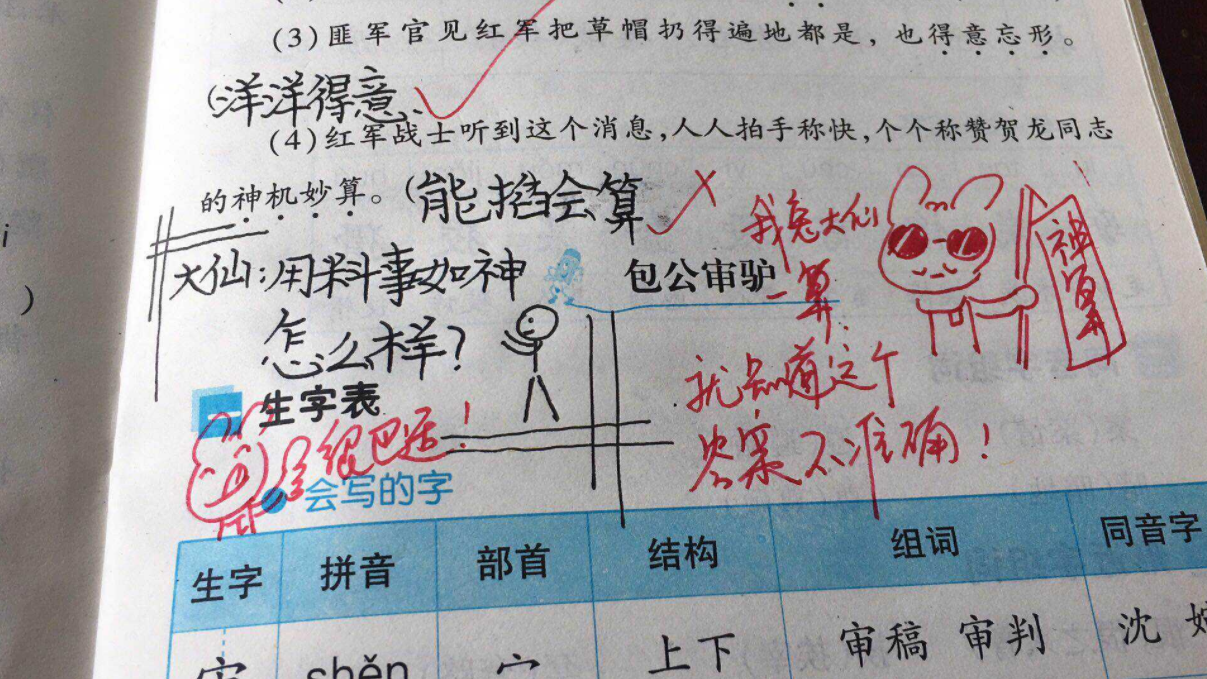 (3)匪军官见红军把草帽扔得遍地都是，也得意忘形。
(洋洋得意
(4)红军战士听到这个消息，人人拍手称快，个个称赞贺龙同志
的神机妙算。(能掐会算
我兔大仙
一算：
就知道这个
答案不准确！
神算
大仙：用料事如神
怎么样？
包公审驴
生字表
很巴适！
会写的字
生字 拼音 部首 结构 组词 同音字
审 shěn 宀 上下 审稿 审判 沈